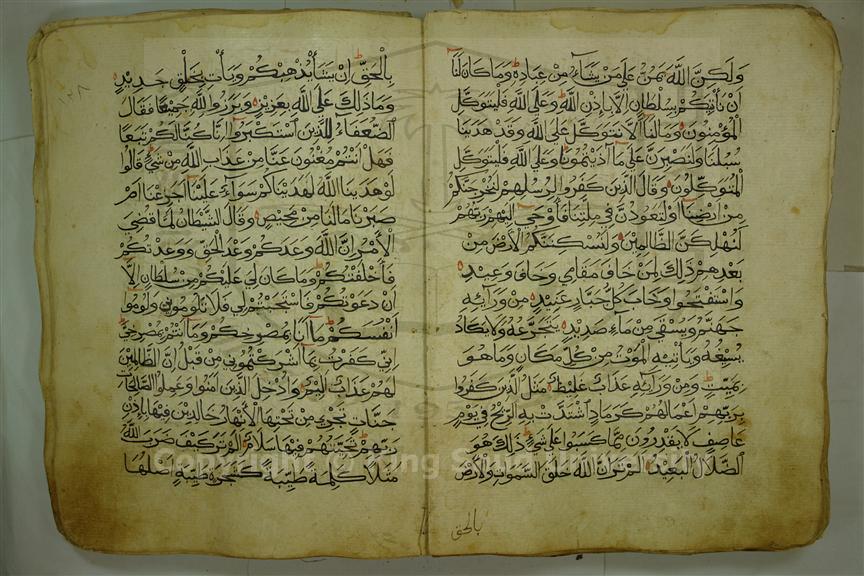 ولكن الله يمن على من يشاء من عباده وما كان لنا
ان نأتيكم بسلطان الا باذن الله وعلى الله فليتوكل
المؤمنون وما لنا ألا نتوكل على الله وقد هدينا
سبلنا ولنصبرن على ما آذيتمونا وعلى الله فليتوكل
المتوكلون وقال الذين كفروا لرسلهم لنخرجنكم
من ارضنا أو لتعودن في ملتنا فأوحى اليهم ربهم
لنهلكن الظالمين ولنسكننكم الأرض من
بعدهم ذلك لمن خاف مقامي وخاف وعيد
واستفتحوا وخاب كل جبار عنيد من ورآئه
جهنم ويسقى من مآء صديد يتجرعه ولا يكاد
يسيغه ويأتيه الموت من كل مكان وما هو
بميت ومن ورآئه عذاب غليظ مثل الذين كفروا
بربهم اعمالهم كرماد اشتدت به الريح في يوم
عاصف لا يقدرون مما كسبوا على شيء ذلك هو
الضلال البعيد الم تر ان الله خلق السموات والأرض
بالحق
بالحق ان يشأ يذهبكم ويأت بخلق جديد
وما ذلك على الله بعزيز وبرزوا لله جميعا فقال
الضعفاء للذين استكبروا إنا كنا لكم تبعا
فهل انتم مغنون عنا من عذاب الله من شيء قالوا
لو هدينا الله لهديناكم سوآء علينا أجزعنا ام
صبرنا ما لنا من محيص وقال الشيطان لما قضي
الأمر ان الله وعدكم وعد الحق ووعدتكم
فأخلفتكم وما كان لي عليكم من سلطان إلا
ان دعوتكم فاستجبتم لي فلا تلوموني ولوموا
انفسكم ما أنا بمصرخكم وما أنتم بمصرخي
إني كفرت بما أشركتموني من قبل ان الظالمين
لهم عذاب اليم وادخل الذين آمنوا وعملوا الصالحات
جنات تجري من تحتها الأنهار خالدين فيها بإذن
ربهم تحيتهم فيها سلام ألم تر كيف ضرب الله
مثلا كلمة طيبة كشجرة طيبة أصلها